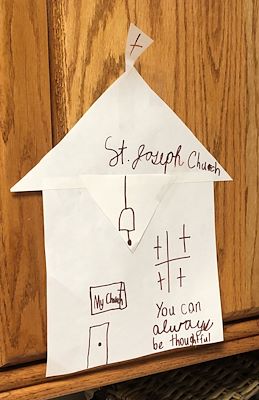 St. Joseph Church
My Church
You can
always
be thoughtful